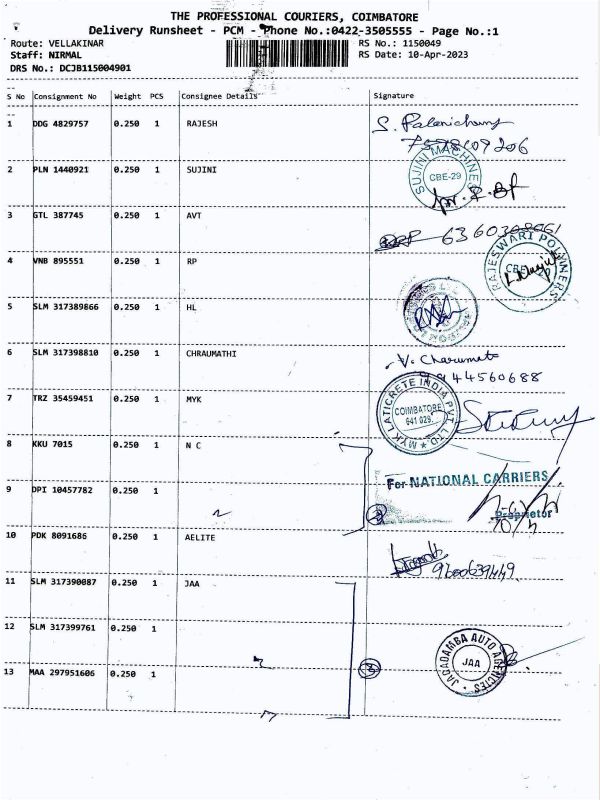 THE PROFESSIONAL COURIERS, COIMBATORE
Delivery Runsheet - PCM - Phone No.:0422-3505555 - Page No.:1
Route: VELLAKINAR RS No.: 1150049
Staff: NIRMAL RS Date: 10-Apr-2023
DRS No.: DCJB115004901
S No Consignment No Weight PCS Consignee Details Signature
1 DDG 4829757 0.250 1 RAJESH S. Palanichamy
2 PLN 1440921 0.250 1 SUJINI
SUJINI MACHINES
CBE-29
3 GTL 387745 0.250 1 AVT
4 VNB 895551 0.250 1 RP
RAJESWARI POLYMERS
5 SLM 317389866 0.250 1 HL
6 SLM 317398810 0.250 1 CHRAUMATHI V. Charumati
9944560688
7 TRZ 35459451 0.250 1 MYK
MYK LATICRETE INDIA PVT. LTD
COIMBATORE
641 029.
8 KKU 7015 0.250 1 N C
For NATIONAL CARRIERS
9 DPI 10457782 0.250 1
2
Proprietor
10/4
10 PDK 8091686 0.250 1 AELITE
11 SLM 317390087 0.250 1 JAA
12 SLM 317399761 0.250 1
JAGADAMBA AUTO AGENCIES
JAA
13 MAA 297951606 0.250 1
3